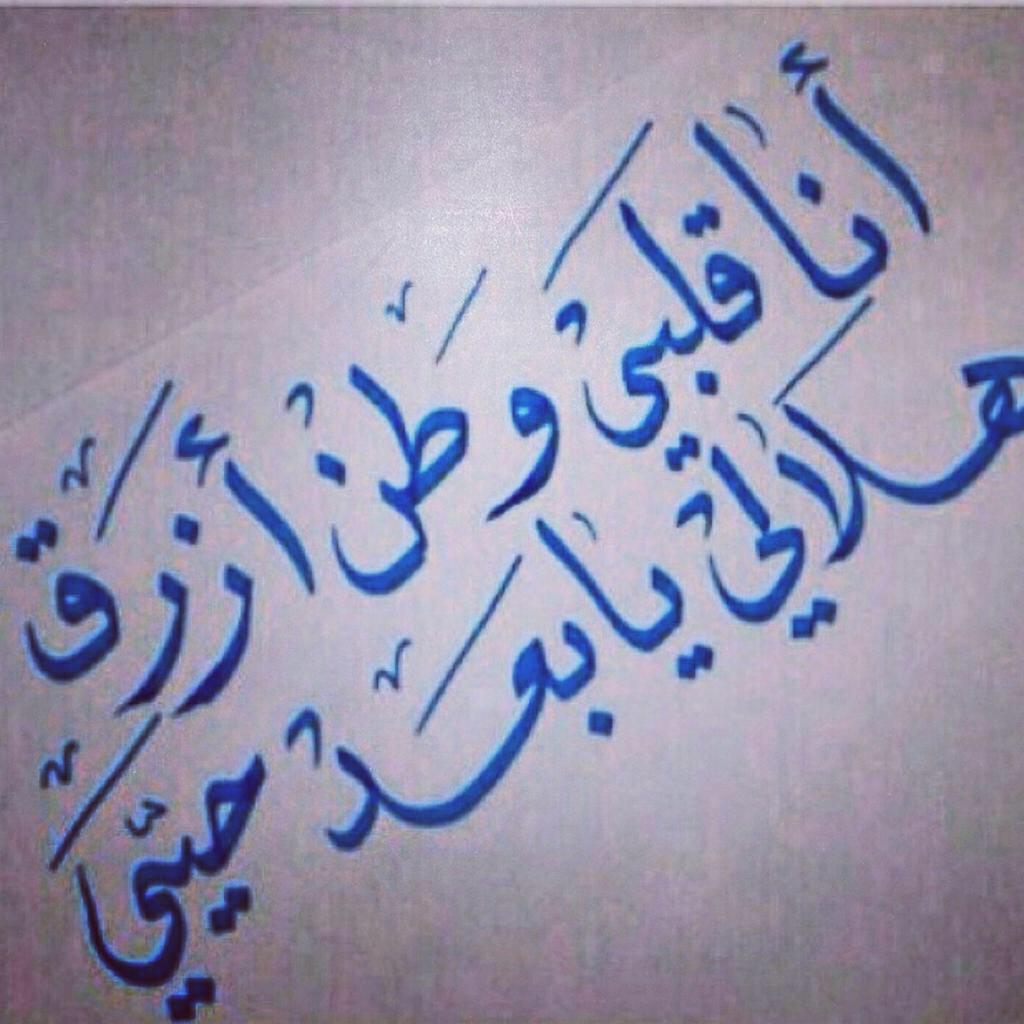 أنا قلبي وطن أزرق
هلالي يا بعد حيّي